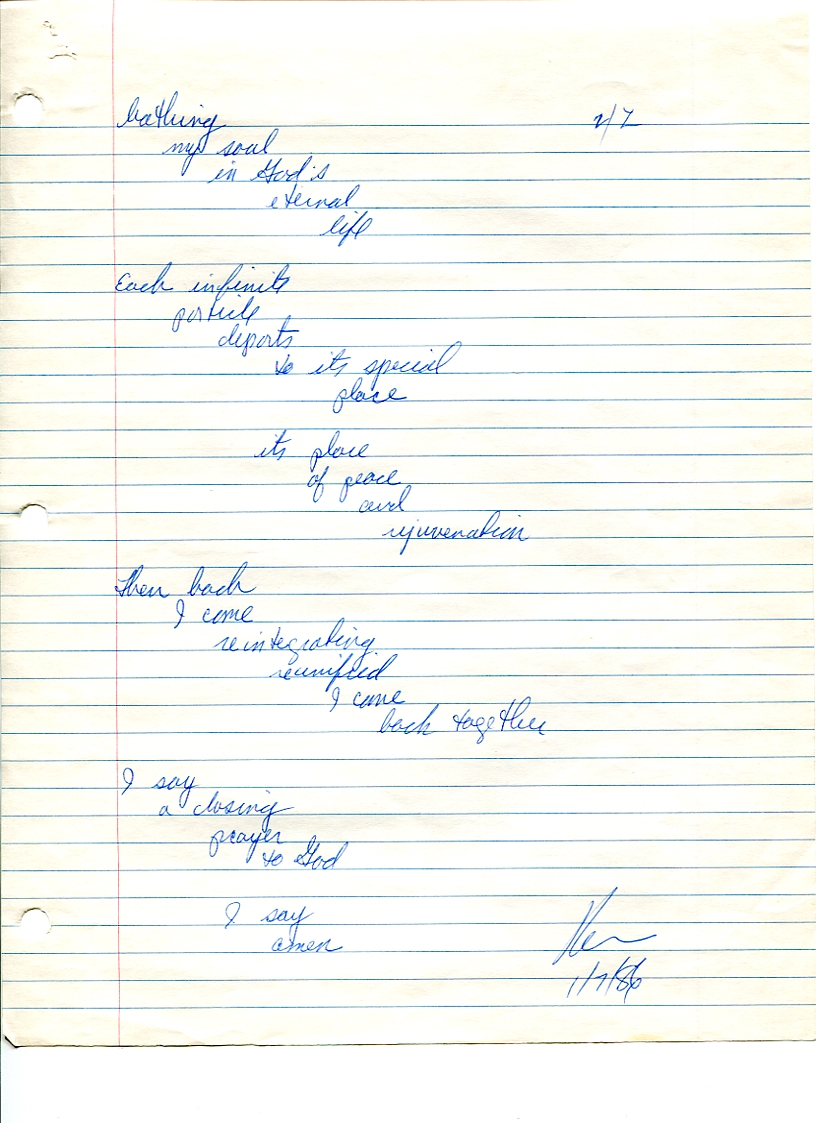 bathing 2/2
my soul
in God's
eternal
life
Each infinite
particle
departs
to its special
place
its place
of peace
and
rejuvenation
Then back
I come
reintegrating
reunified
I come
back together
I say
a closing
prayer
to God
I say
amen
Ken
1/7/86